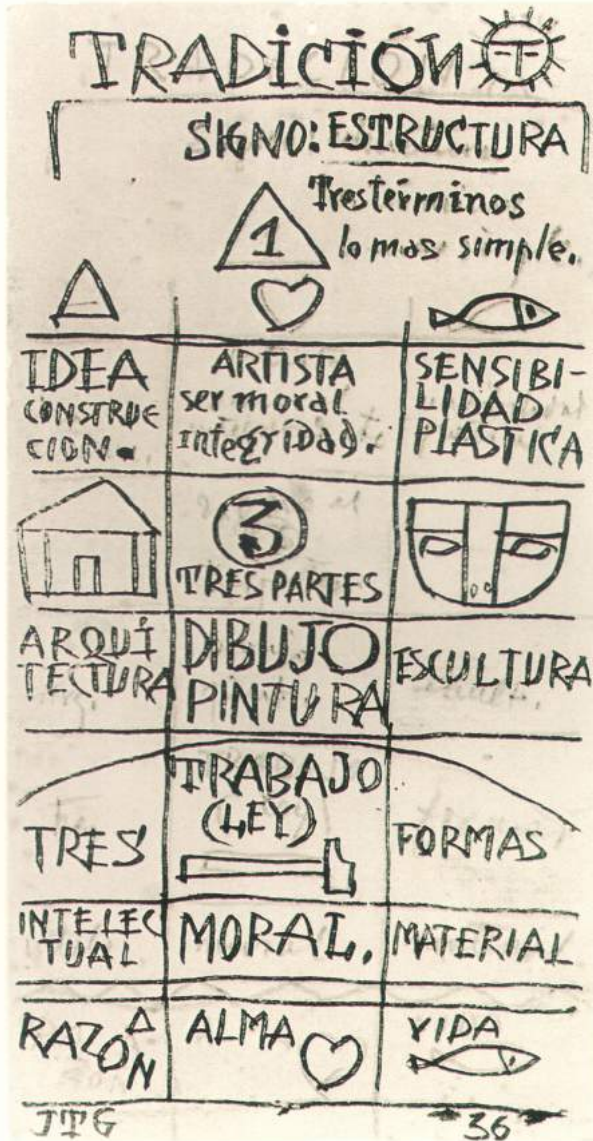 TRADICIÓN
SIGNO: ESTRUCTURA
Tres términos
lo mas simple.
1
IDEA
CONSTRUC
CION.
ARTISTA
ser moral
integridad.
SENSIBI-
LIDAD
PLASTICA
3
TRES PARTES
ARQUI
TECTURA
DIBUJO
PINTURA
ESCULTURA
TRABAJO
(LEY)
TRES
FORMAS
INTELEC
TUAL
MORAL.
MATERIAL
RAZÓN
ALMA
VIDA
JTG
36